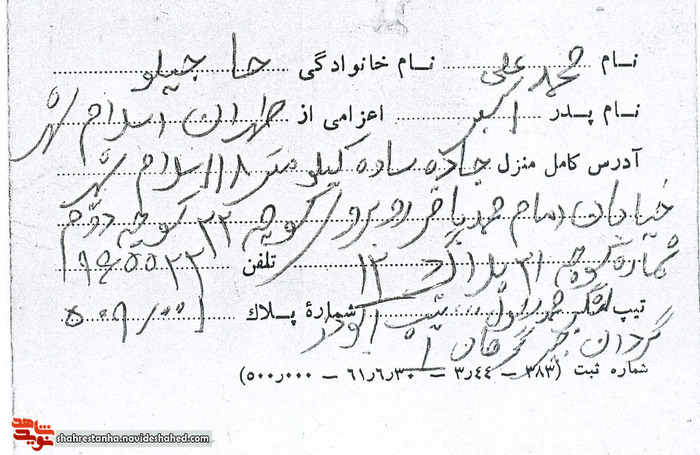 نام محمد علی نام خانوادگی حاجیلو
نام پدر اکبر اعزامی از طهران اسلام شهر
آدرس کامل منزل جاده ساده کیلومتر ۱۸ اسلام شهر
خیابان امام محمد باقر روبروی کوچه ۲۲ کوچه دوم
شماره کوچه ۳۱ پلاک ۱۲ تلفن
تیپ لشگر محمد رسول تیپ ابوذر شمارهٔ پلاک
گردان
شماره ثبت (۳۸۳ – ۳ر۴۴ – ۶۱ر۶ر۳۰ – ۵۰۰ر۰۰۰)
شاهد
نوید
shahrestanha.navideshahed.com